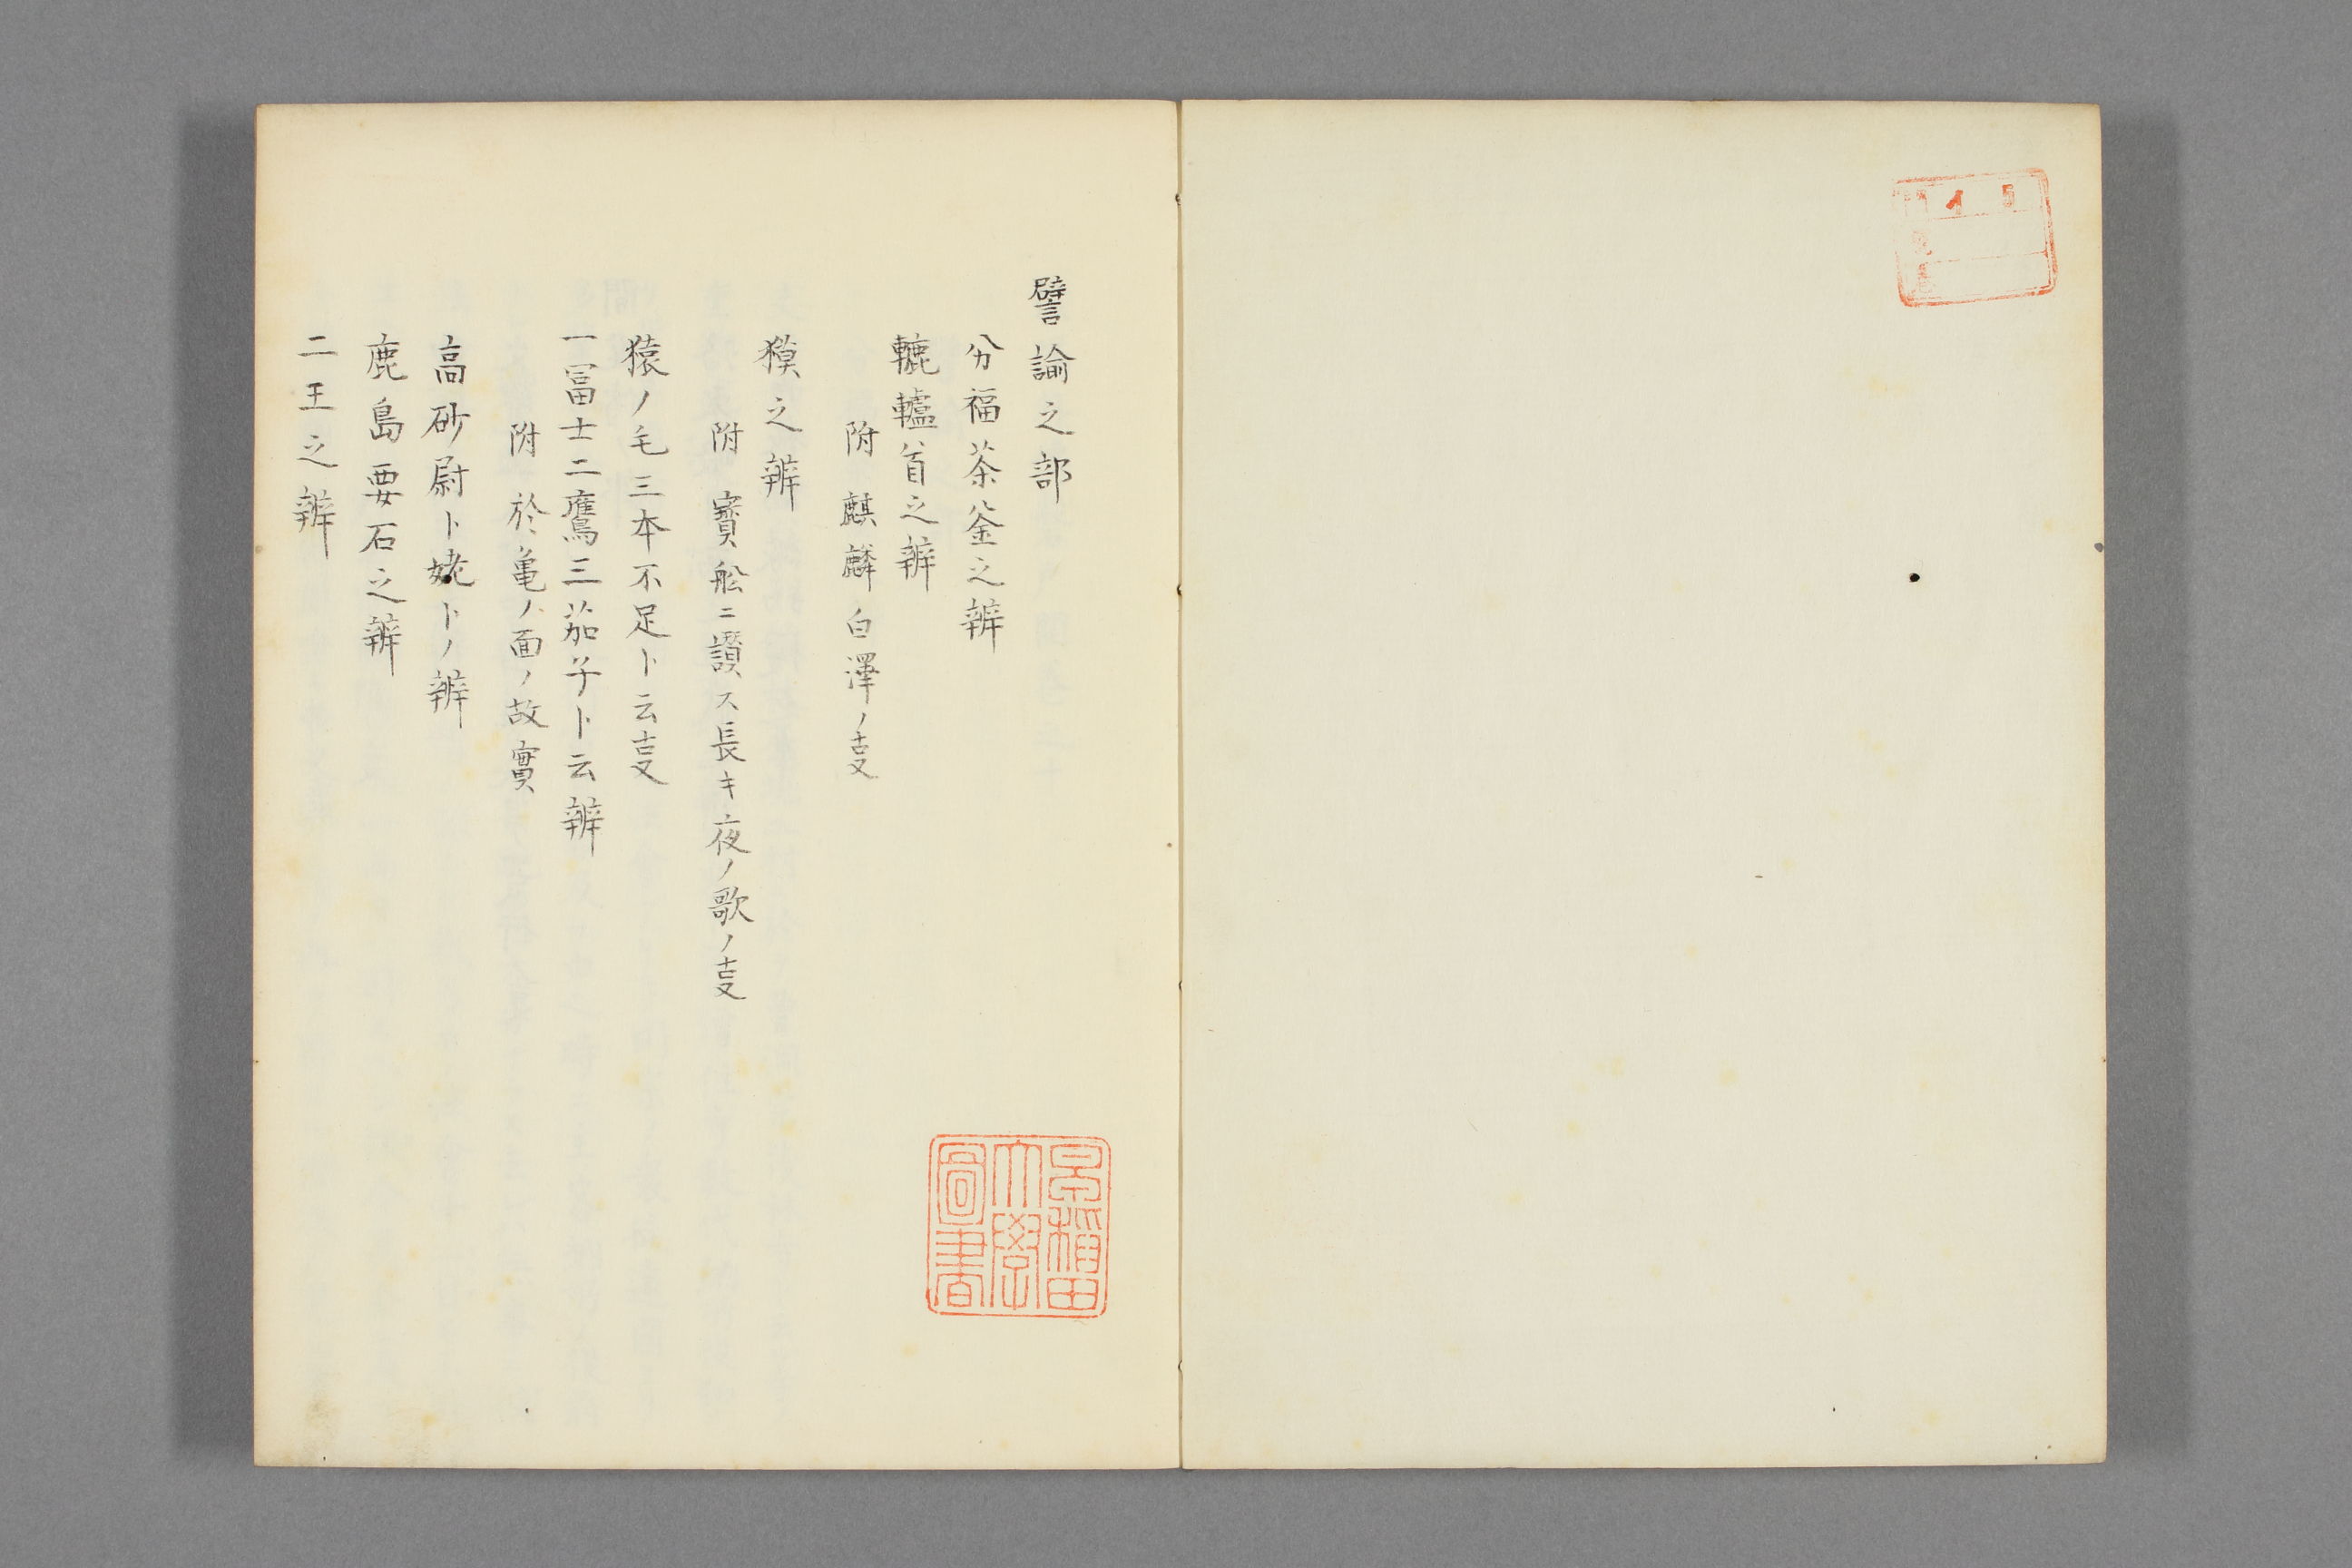 譬諭之部
分福茶釜之辨
轆轤首之辨
附 麒麟白澤ノ㕝
獏之辨
附 寳舩ニ讃ス長キ夜ノ歌ノ㕝
猿ノ毛三本不足ト云㕝
一冨士二鷹三茄子ト云辨
附 於亀ノ面ノ故實
高砂尉ト姥トノ辨
鹿島要石之辨
二王之辨
早稲田
大學
圖書